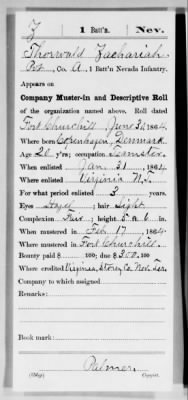 Z | 1 Batt'n. | Nev.
Thorwald Zachariah
Pvt., Co. A, 1 Batt'n Nevada Infantry.
Appears on
Company Muster-in and Descriptive Roll
of the organization named above. Roll dated
Fort Churchill, June 30, 1864.
Where born Copenhagen, Denmark
Age 26 y'rs; occupation Teamster
When enlisted Jan. 31, 1864
Where enlisted Virginia N.T.
For what period enlisted 3 years.
Eyes Hazel; hair Light
Complexion Fair; height 5 ft. 6 in.
When mustered in Feb 17, 1864
Where mustered in Fort Churchill.
Bounty paid $ 100; due $ 300 100
Where credited Virginia, Storey Co. Nev. Ter.
Company to which assigned
Remarks:
Book mark:
Palmer
Copyist.